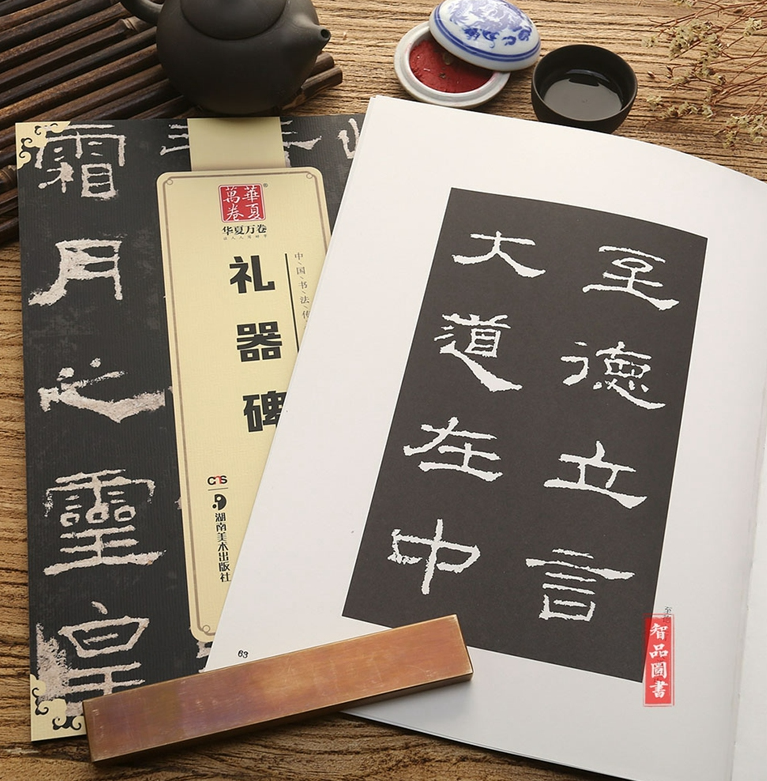 霜月之靈皇
華夏
萬卷
华夏万卷
礼器碑
中国书法传
CS
湖南美术出版社
至德立言
大道在中
63
智品圖書